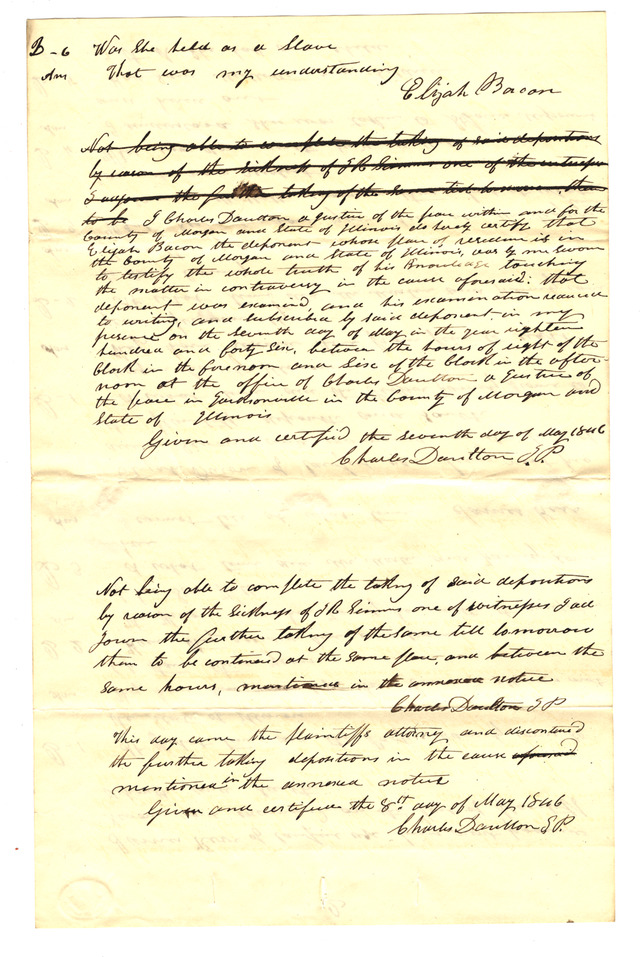 D - 6 Was She held as a Slave
Ans That was my understanding
Elijah Bacon
Not being able to complete the taking of said depositions
by reason of the Sickness of J R Simms one of the witnesses
I adjourn the further taking of the same till tomorrow then
to be I Charles Daulton a Justice of the peace within and for the
County of Morgan and State of Illinois do hereby certify that
Elijah Bacon the deponent whose place of residence is in
the County of Morgan and State of Illinois, was by me sworn
to testify the whole truth of his Knowledge touching
the matter in controversy in the cause aforesaid; that
deponent was examined, and his examination reduced
to writing, and subscribed by said deponent in my
presence on the Seventh day of May in the year eighteen
hundred and forty Six, between the hours of eight of the
Clock in the forenoon and Six of the Clock in the after-
noon at the office of Charles Daulton a Justice of
the peace in Jacksonville in the County of Morgan and
State of Illinois
Given and certified the seventh day of May 1846
Charles Daulton J.P.
Not being able to complete the taking of said depositions
by reason of the Sickness of J R Simms one of witnesses I ad
journ the further taking of the same till tomorrow
then to be continued at the same place, and between the
same hours, mentioned in the annexed notice
Charles Daulton J P
This day came the plaintiffs attorney and discontinued
the further taking depositions in the cause aforesaid
mentioned in the annexed notice
Given and certified the 8th day of May 1846
Charles Daulton J.P.